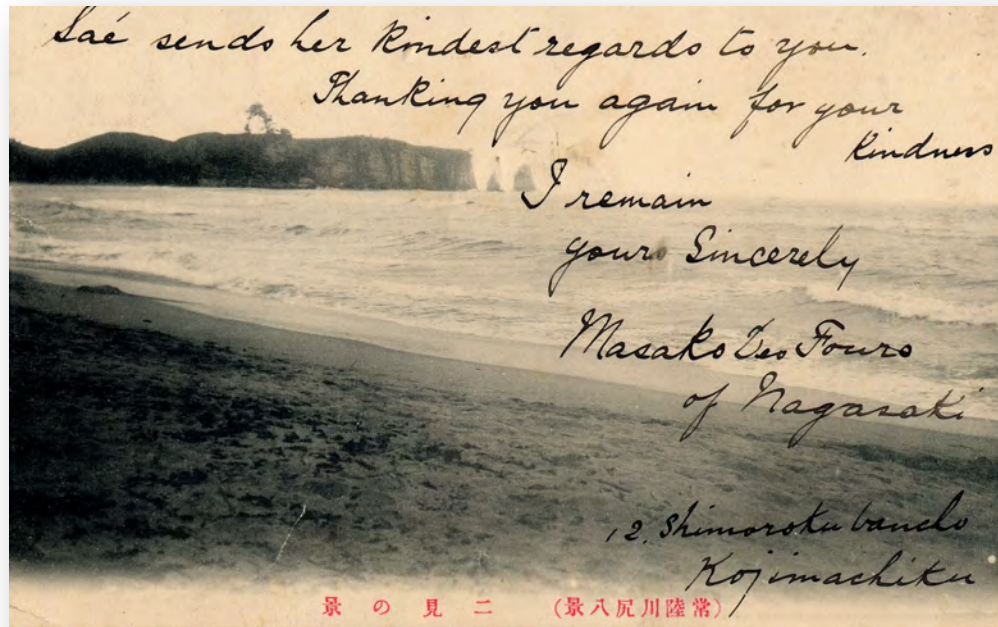 Saé sends her kindest regards to you.
Thanking you again for your
kindness
I remain
yours Sincerely
Masako Des Fours
of Nagasaki
12. Shimoroku bancho
Kojimachiku
景の見二 (景八尻川陸常)